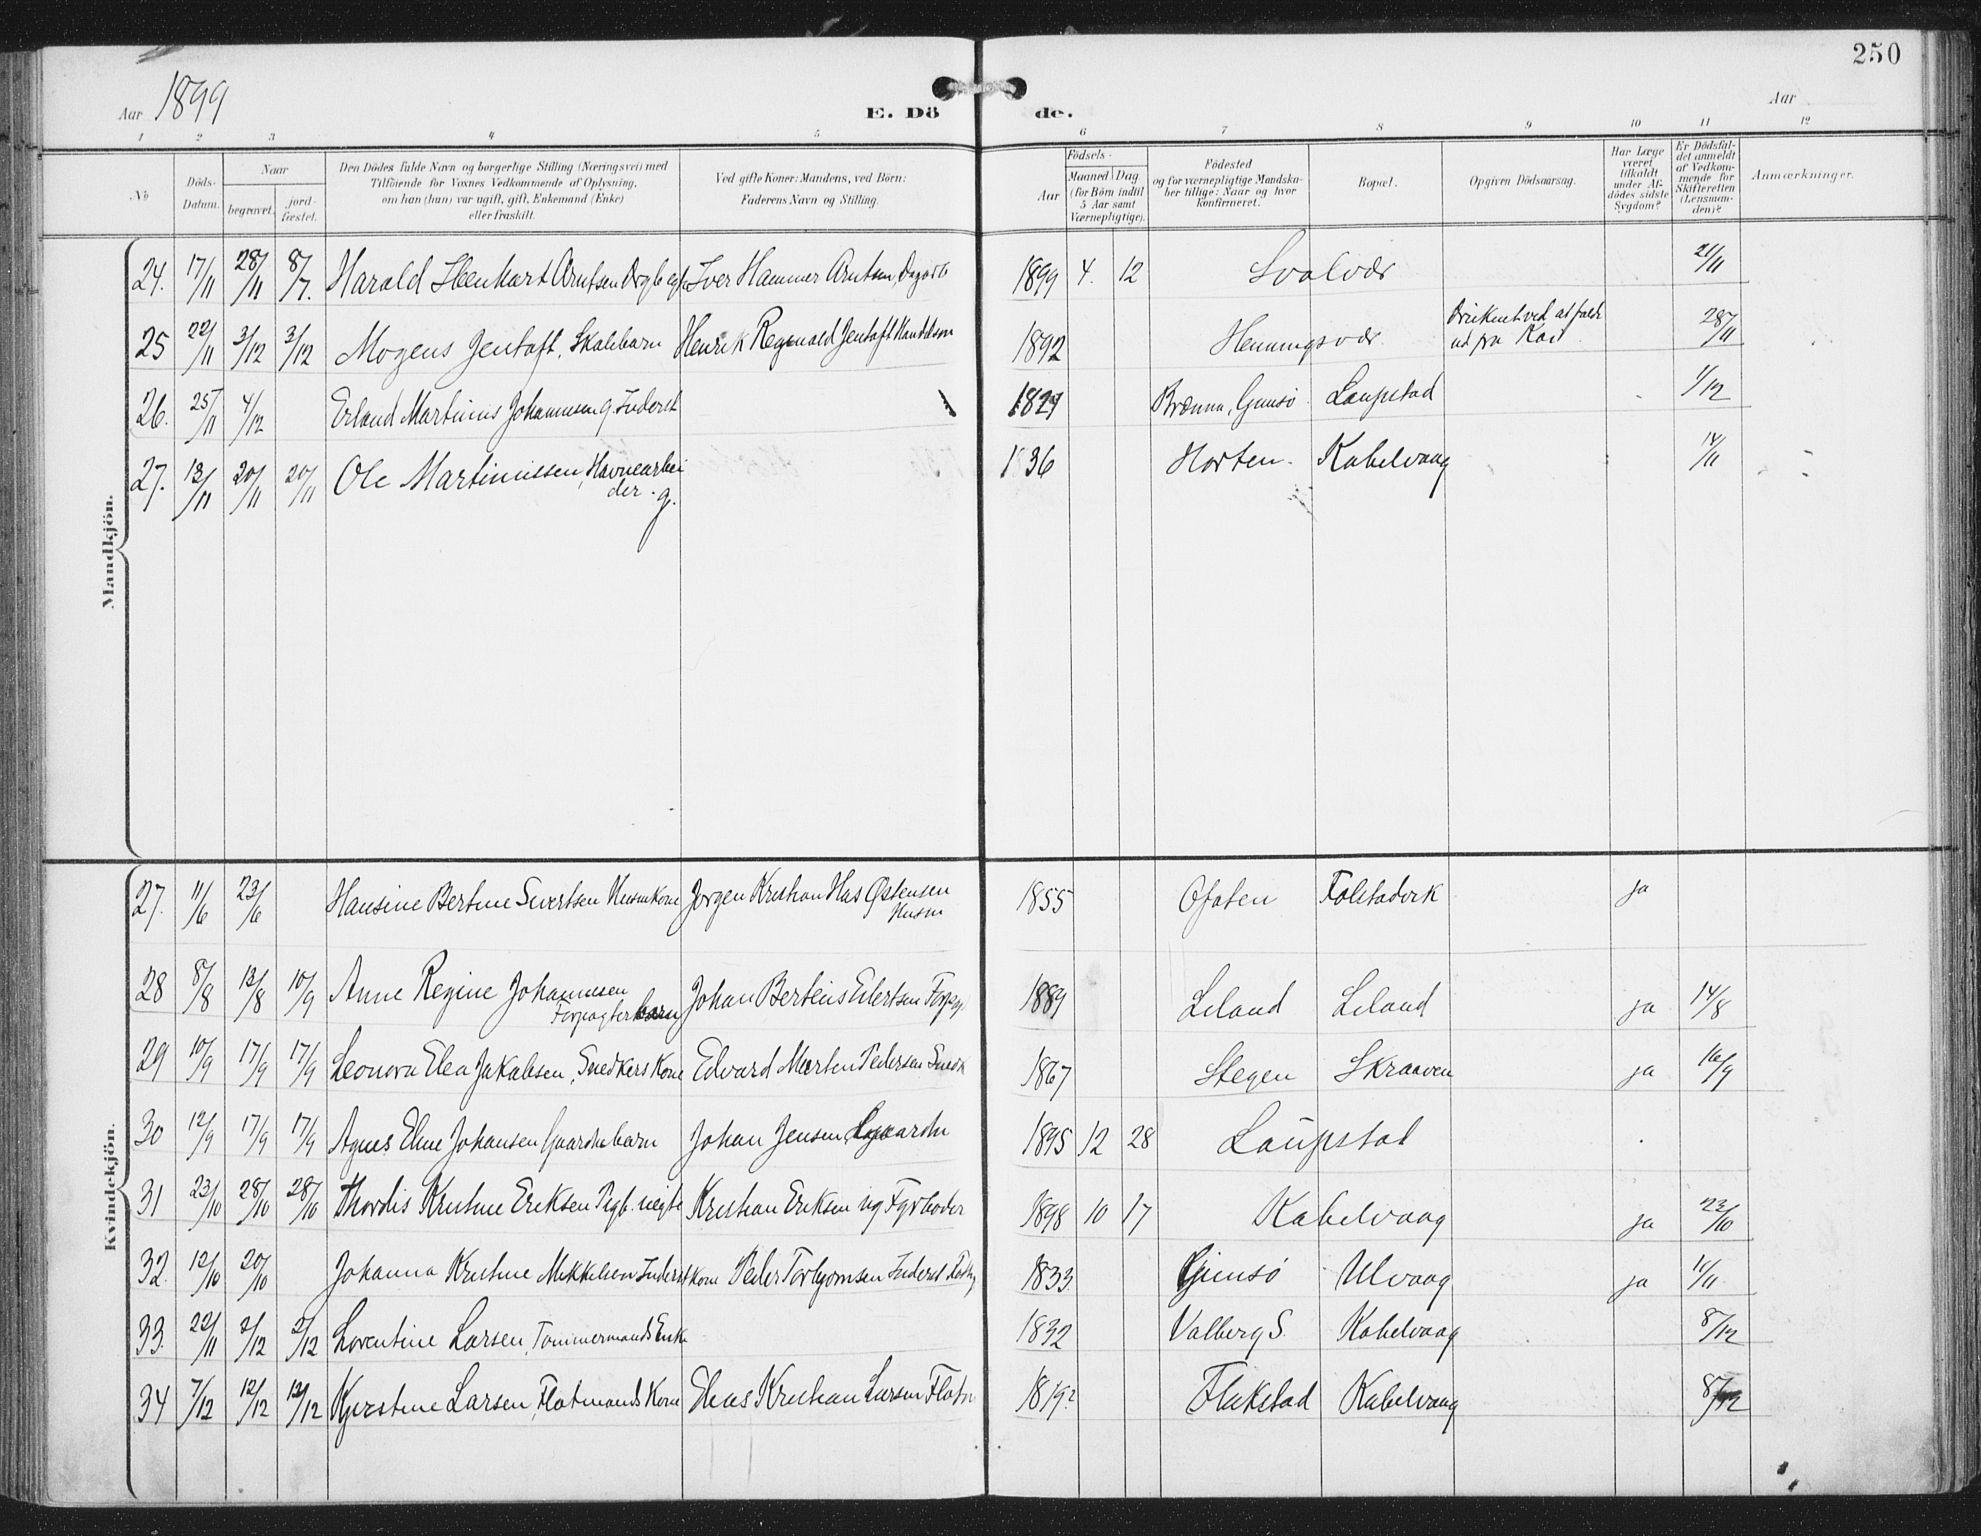 250
Aar 1899
E. Dö de.
Aar
1 2 3 4 5 6 7 8 9 10 11 12
No
Döds-
Datum.
Naar
begravet.
jord-
fæstet.
Den Dödes fulde Navn og borgerlige Stilling (Næringsvei) med
Tilföiende for Voxnes Vedkommende af Oplysning,
om han (hun) var ugift, gift, Enkemand (Enke)
eller fraskilt.
Ved gifte Koner: Mandens, ved Börn:
Faderens Navn og Stilling.
Födsels-
Aar
Maaned Dag
(for Börn indtil
5 Aar samt
Værnepligtige).
Födested
og for værnepligtige Mandska-
ber tillige: Naar og hvor
konfirmeret.
Bopæl.
Opgiven Dödsaarsag.
Har Læge
været
tilkaldt
under Af-
dödes sidste
Sygdom?
Er Dödsfal-
det anmeldt
af Vedkom-
mende for
Skifteretten
(Lensman-
den)?
Anmærkninger.
Mandkjön.
24. 17/11 28/11 8/7. Harald Arntsen Iver Hammer Arntsen, Dagarb 1899 4. 12 Svolvær 21/11
25 22/11 3/12 3/12 Mogens Jentoft, Henrik Reginald Jentoft 1892 Henningsvær ved at falde 28/11
ud fra Kai
26. 25/11 4/12 Erland Martinus Johannesen g. Inderst 1829 Brenna, Gimsø Laupstad 1/12
27. 13/11 20/11 20/11 Ole Martinussen, Havnearbei 1836 Horten. Kabelvaag 14/11
der. g.
Kvindekjön.
27. 11/6 23/6 Hansine Bertine Sivertsen Husmkone Jørgen Kristian Østensen 1855 Ofoten ja
Husm
28 8/8 13/8 10/9 Anne Regine Johannesen Johan Eilertsen Forpgt. 1889 Liland Liland ja 14/8
Forpagterbarn
29 10/9 17/9 17/9 Leonora Elea Jakobsen, Snedkers Kone Edvard Martin Pedersen Snedk 1867 Stegen Skraaven ja 16/9
30 12/9 17/9 17/9 Agnes Eline Johansen Gaardm barn Johan Jensen, Gaardm 1895 12 28 Laupstad
31 23/10 28/10 28/10 Thordis Kristine Eriksen Pigb. uegte Kristian Eriksen ug Fyrbøder 1898 10 17 Kabelvaag ja 23/10
32. 12/10 20/10 Johanna Kristine Mikkelsen Inderstkone Peder Torbjørnsen Inderst 1833. Gimsø Ulvaag ja 11/11
33. 22/11 2/12 2/12 Lorentine Larsen, Tømmermands Enke 1832 Valberg S. Kabelvaag 8/12
34 7/12 12/12 12/12 Kjerstine Larsen, Flotmands Kone Elias Kristian Larsen Flotm 1819? Flakstad Kabelvaag 8/12